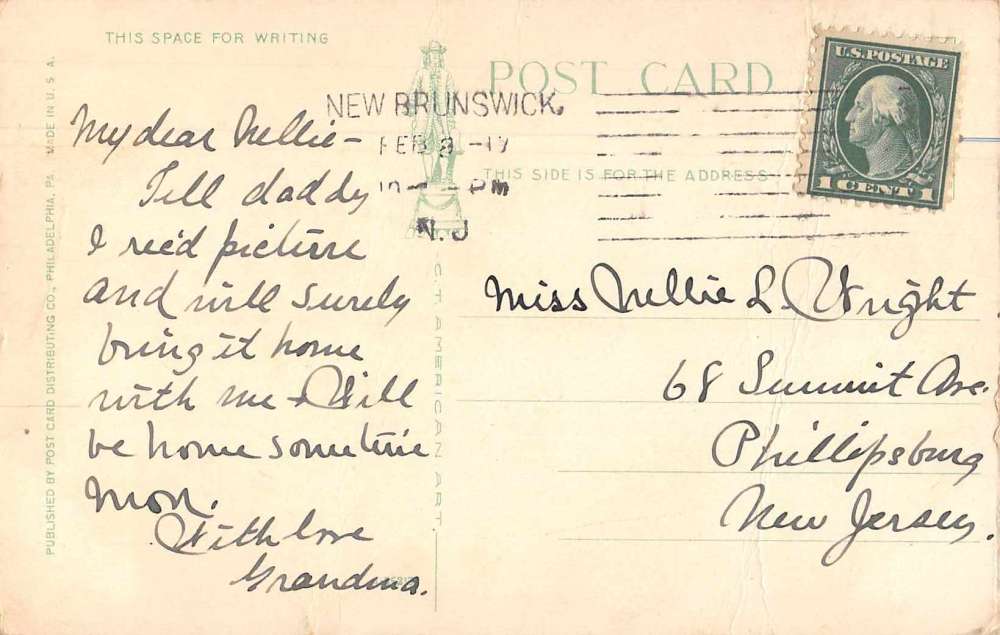 THIS SPACE FOR WRITING
POST CARD
U.S. POSTAGE
1 CENT 1
NEW BRUNSWICK,
FEB 3 -17
PM
N.J
THIS SIDE IS FOR THE ADDRESS
My dear Nellie-
Tell daddy
I rec'd picture
and will surely
bring it home
with me - Will
be home sometime
Mon.
With love
Grandma.
Miss Nellie L. Wright
68 Summit Ave.
Phillipsburg
New Jersey.
C.T. AMERICAN ART.
PUBLISHED BY POST CARD DISTRIBUTING CO., PHILADELPHIA, PA. MADE IN U.S.A.